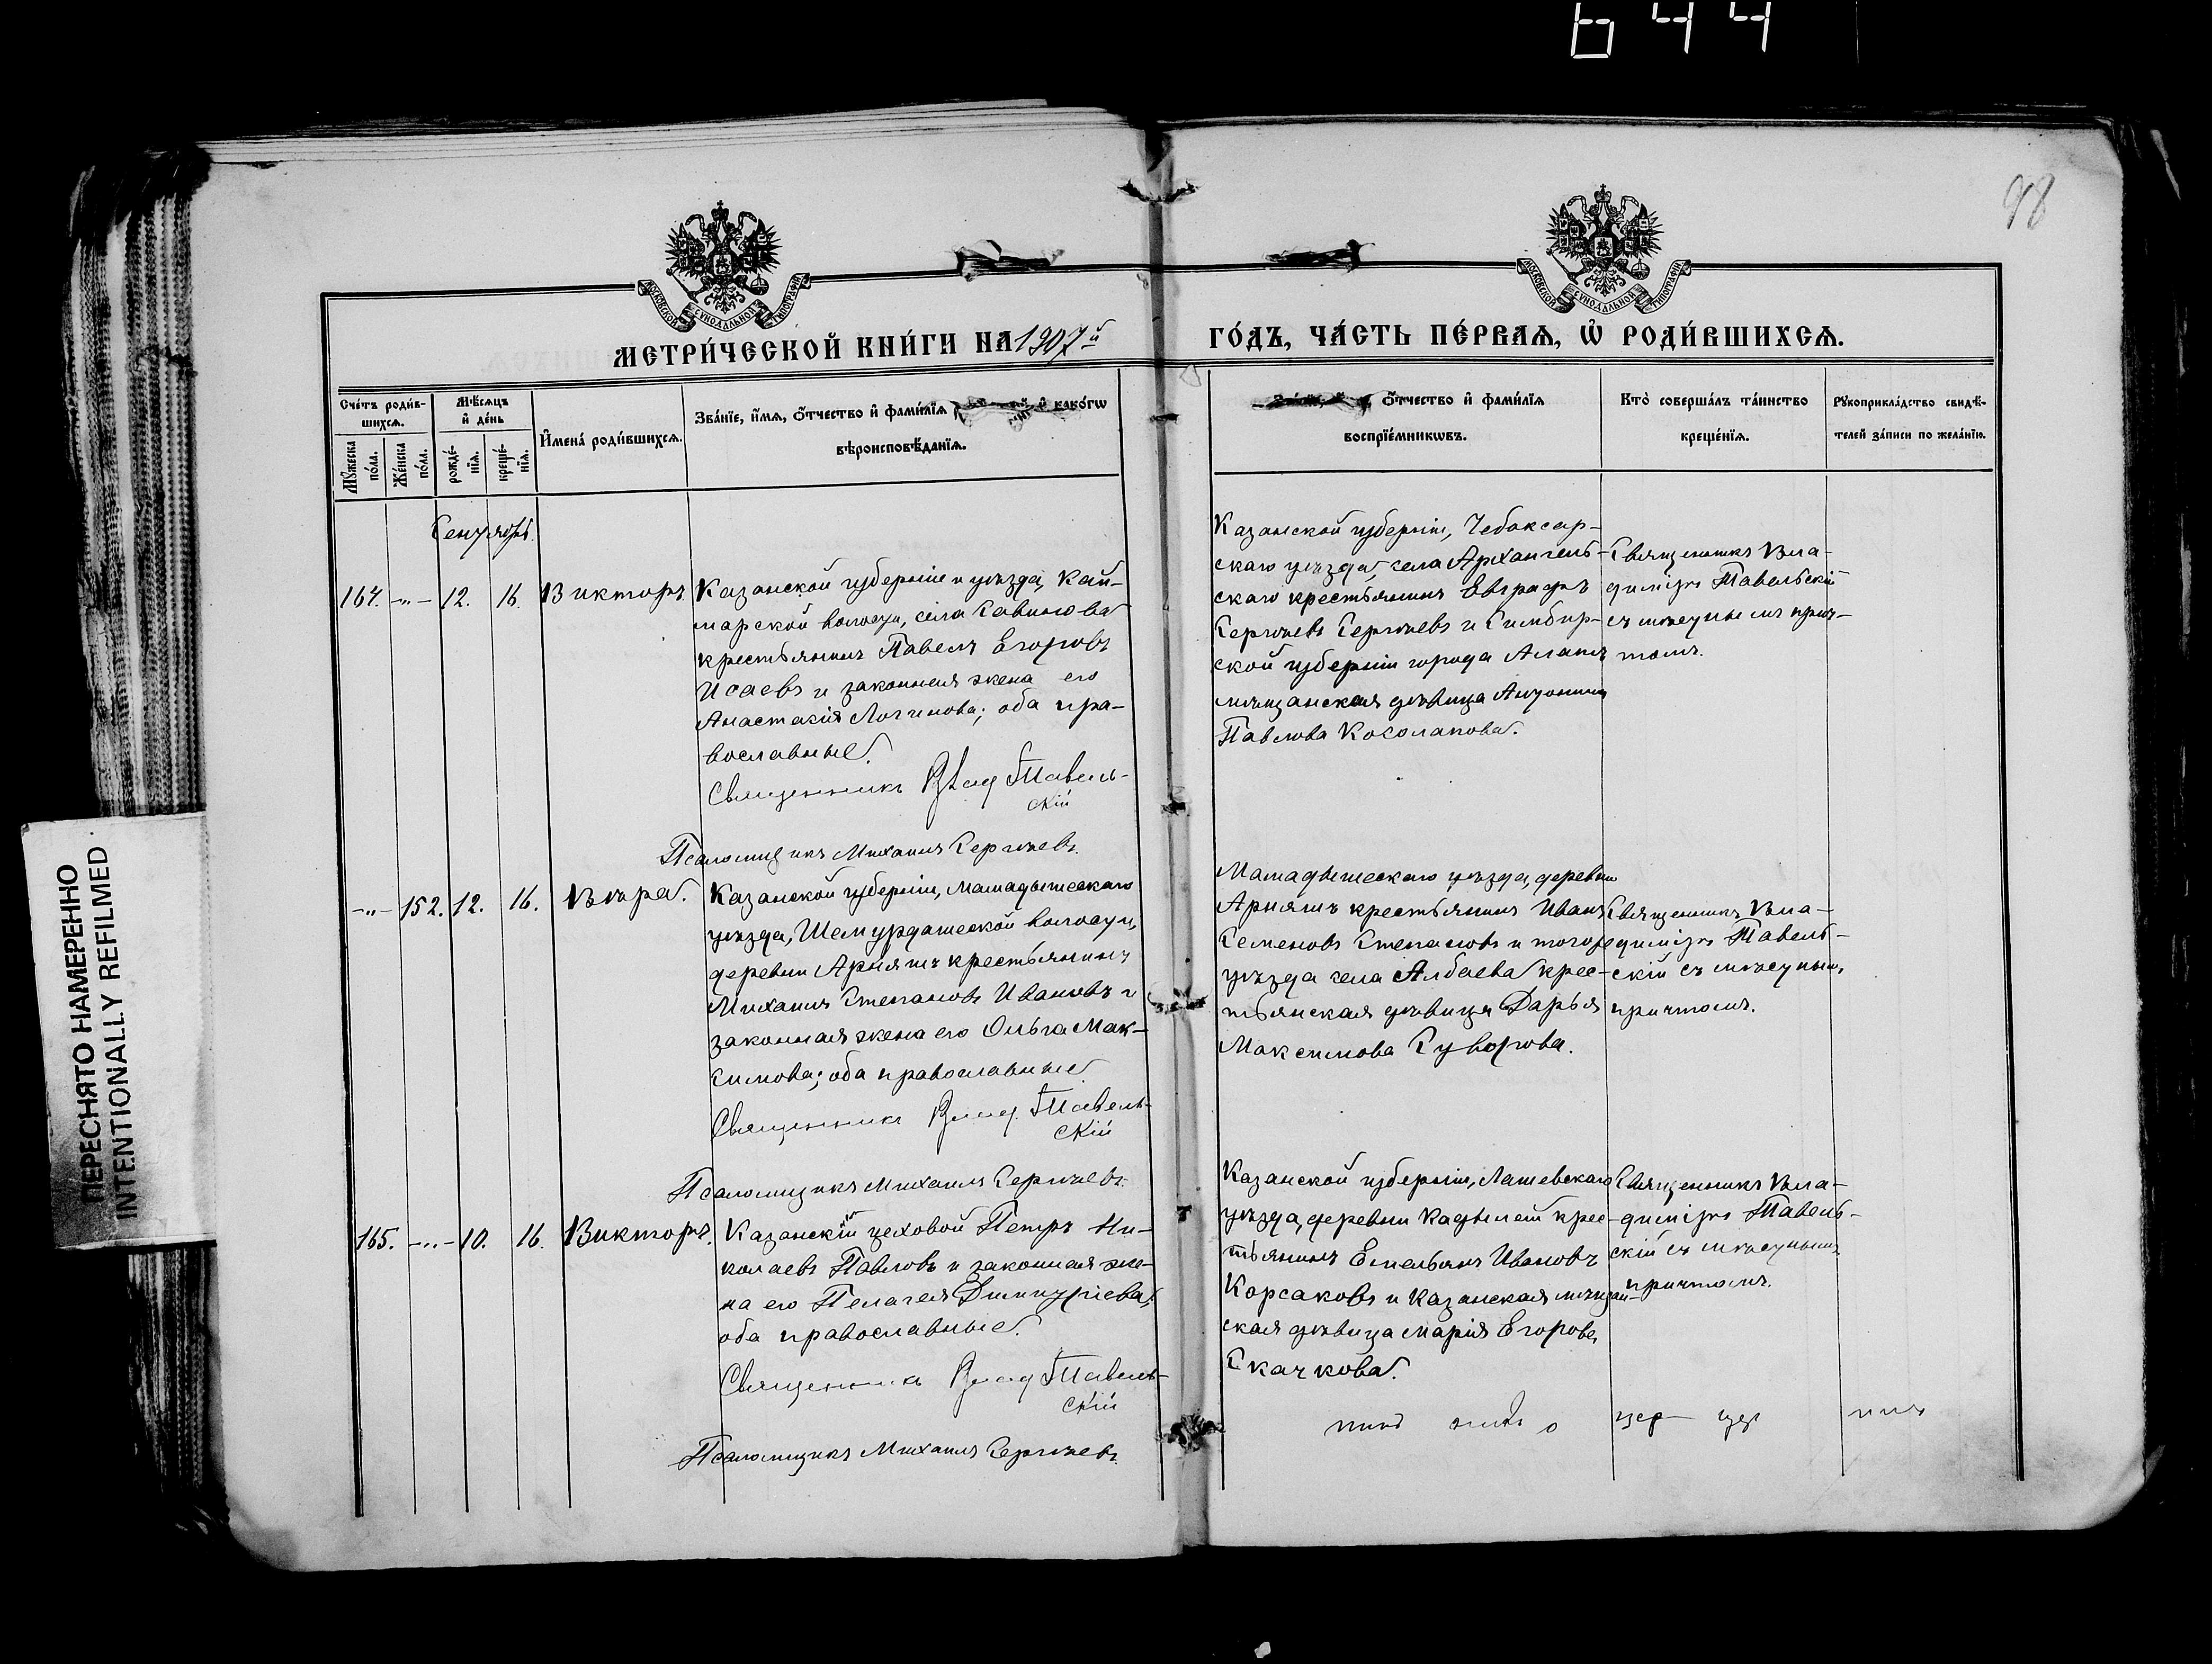 644
98
МОСКОВСКОЙ СУНОДАЛЬНОЙ ТИПОГРАФІИ
МОСКОВСКОЙ СУНОДАЛЬНОЙ ТИПОГРАФІИ
МЕТРИ́ЧЕСКОЙ КНИ́ГИ НА 1907й
ГО́ДЪ, ЧА́СТЬ ПЕ́РВАѦ, Ѽ РОДИ́ВШИХСѦ.
Сче́тъ роди́в-
шихсѧ.
Мꙋ́жеска
по́ла.
Же́нска
по́ла.
Мѣ́сѧцъ
и҆ де́нь
рожде́-
нїѧ.
креще́-
нїѧ.
И҆мена̀ роди́вшихсѧ.
Зва́нїе, и҆́мѧ, ѻ҆́тчество и҆ фами́лїѧ и҆ како́гѡ
вѣроисповѣ́данїѧ.
ѻ҆́тчество и҆ фами́лїѧ
воспрїе́мникѡвъ.
Кто̀ соверша́лъ та́инство
креще́нїѧ.
Рꙋкоприкла́дство свидѣ́-
телей за́писи по жела́нїю.
Сентябрь.
164. -"- 12. 16. Викторъ.
Казанской губерніи и уѣзда, Кай-
марской волости, села Савинова
крестьянинъ Павелъ Егоровъ
Исаевъ и законная жена его
Анастасія Логинова; оба пра-
вославные.
Священникъ Влад Павель-
скій
Псаломщикъ Михаилъ Сергѣевъ.
Казанской губерніи, Чебоксар-
скаго уѣзда, села Архангель-
скаго крестьянинъ Евграфъ
Сергѣевъ Сергѣевъ и Симбир-
ской губерніи города
мѣщанская дѣвица Антонина
Павлова Косолапова.
Священникъ Вла-
диміръ Павельскій
съ мѣстнымъ прич-
томъ.
-"- 152. 12. 16. Вѣра.
Казанской губерніи, Мамадышскаго
уѣзда, Шемурдашской волости,
деревни Арняшъ крестьянинъ
Михаилъ Степановъ Ивановъ и
законная жена его Ольга Мак-
симова; оба православные
Священникъ Влад. Павель-
скій
Псаломщикъ Михаилъ Сергѣевъ.
Мамадышскаго уѣзда, деревни
Арняшъ крестьянинъ Иванъ
Семеновъ Степановъ и того же
уѣзда села Албаева крес-
тьянская дѣвица Дарья
Максимова Суворова.
Священникъ Вла-
диміръ Павель-
скій съ мѣстнымъ
причтомъ.
165. -"- 10. 16. Викторъ.
Казанскій цеховой Петръ Ни-
колаевъ Павловъ и законная же-
на его Пелагея Димитріева;
оба православные.
Священникъ Влад Павель-
скій
Псаломщикъ Михаилъ Сергѣевъ.
Казанской губерніи, Лаишевскаго
уѣзда, деревни Кадылей крес-
тьянинъ Емельянъ Ивановъ
Корсаковъ и Казанская мѣщан-
ская дѣвица Марія Егорова
Скачкова.
Священникъ Вла-
диміръ Павель-
скій съ мѣстнымъ
причтомъ.
ПЕРЕСНЯТО НАМЕРЕННО
INTENTIONALLY REFILMED